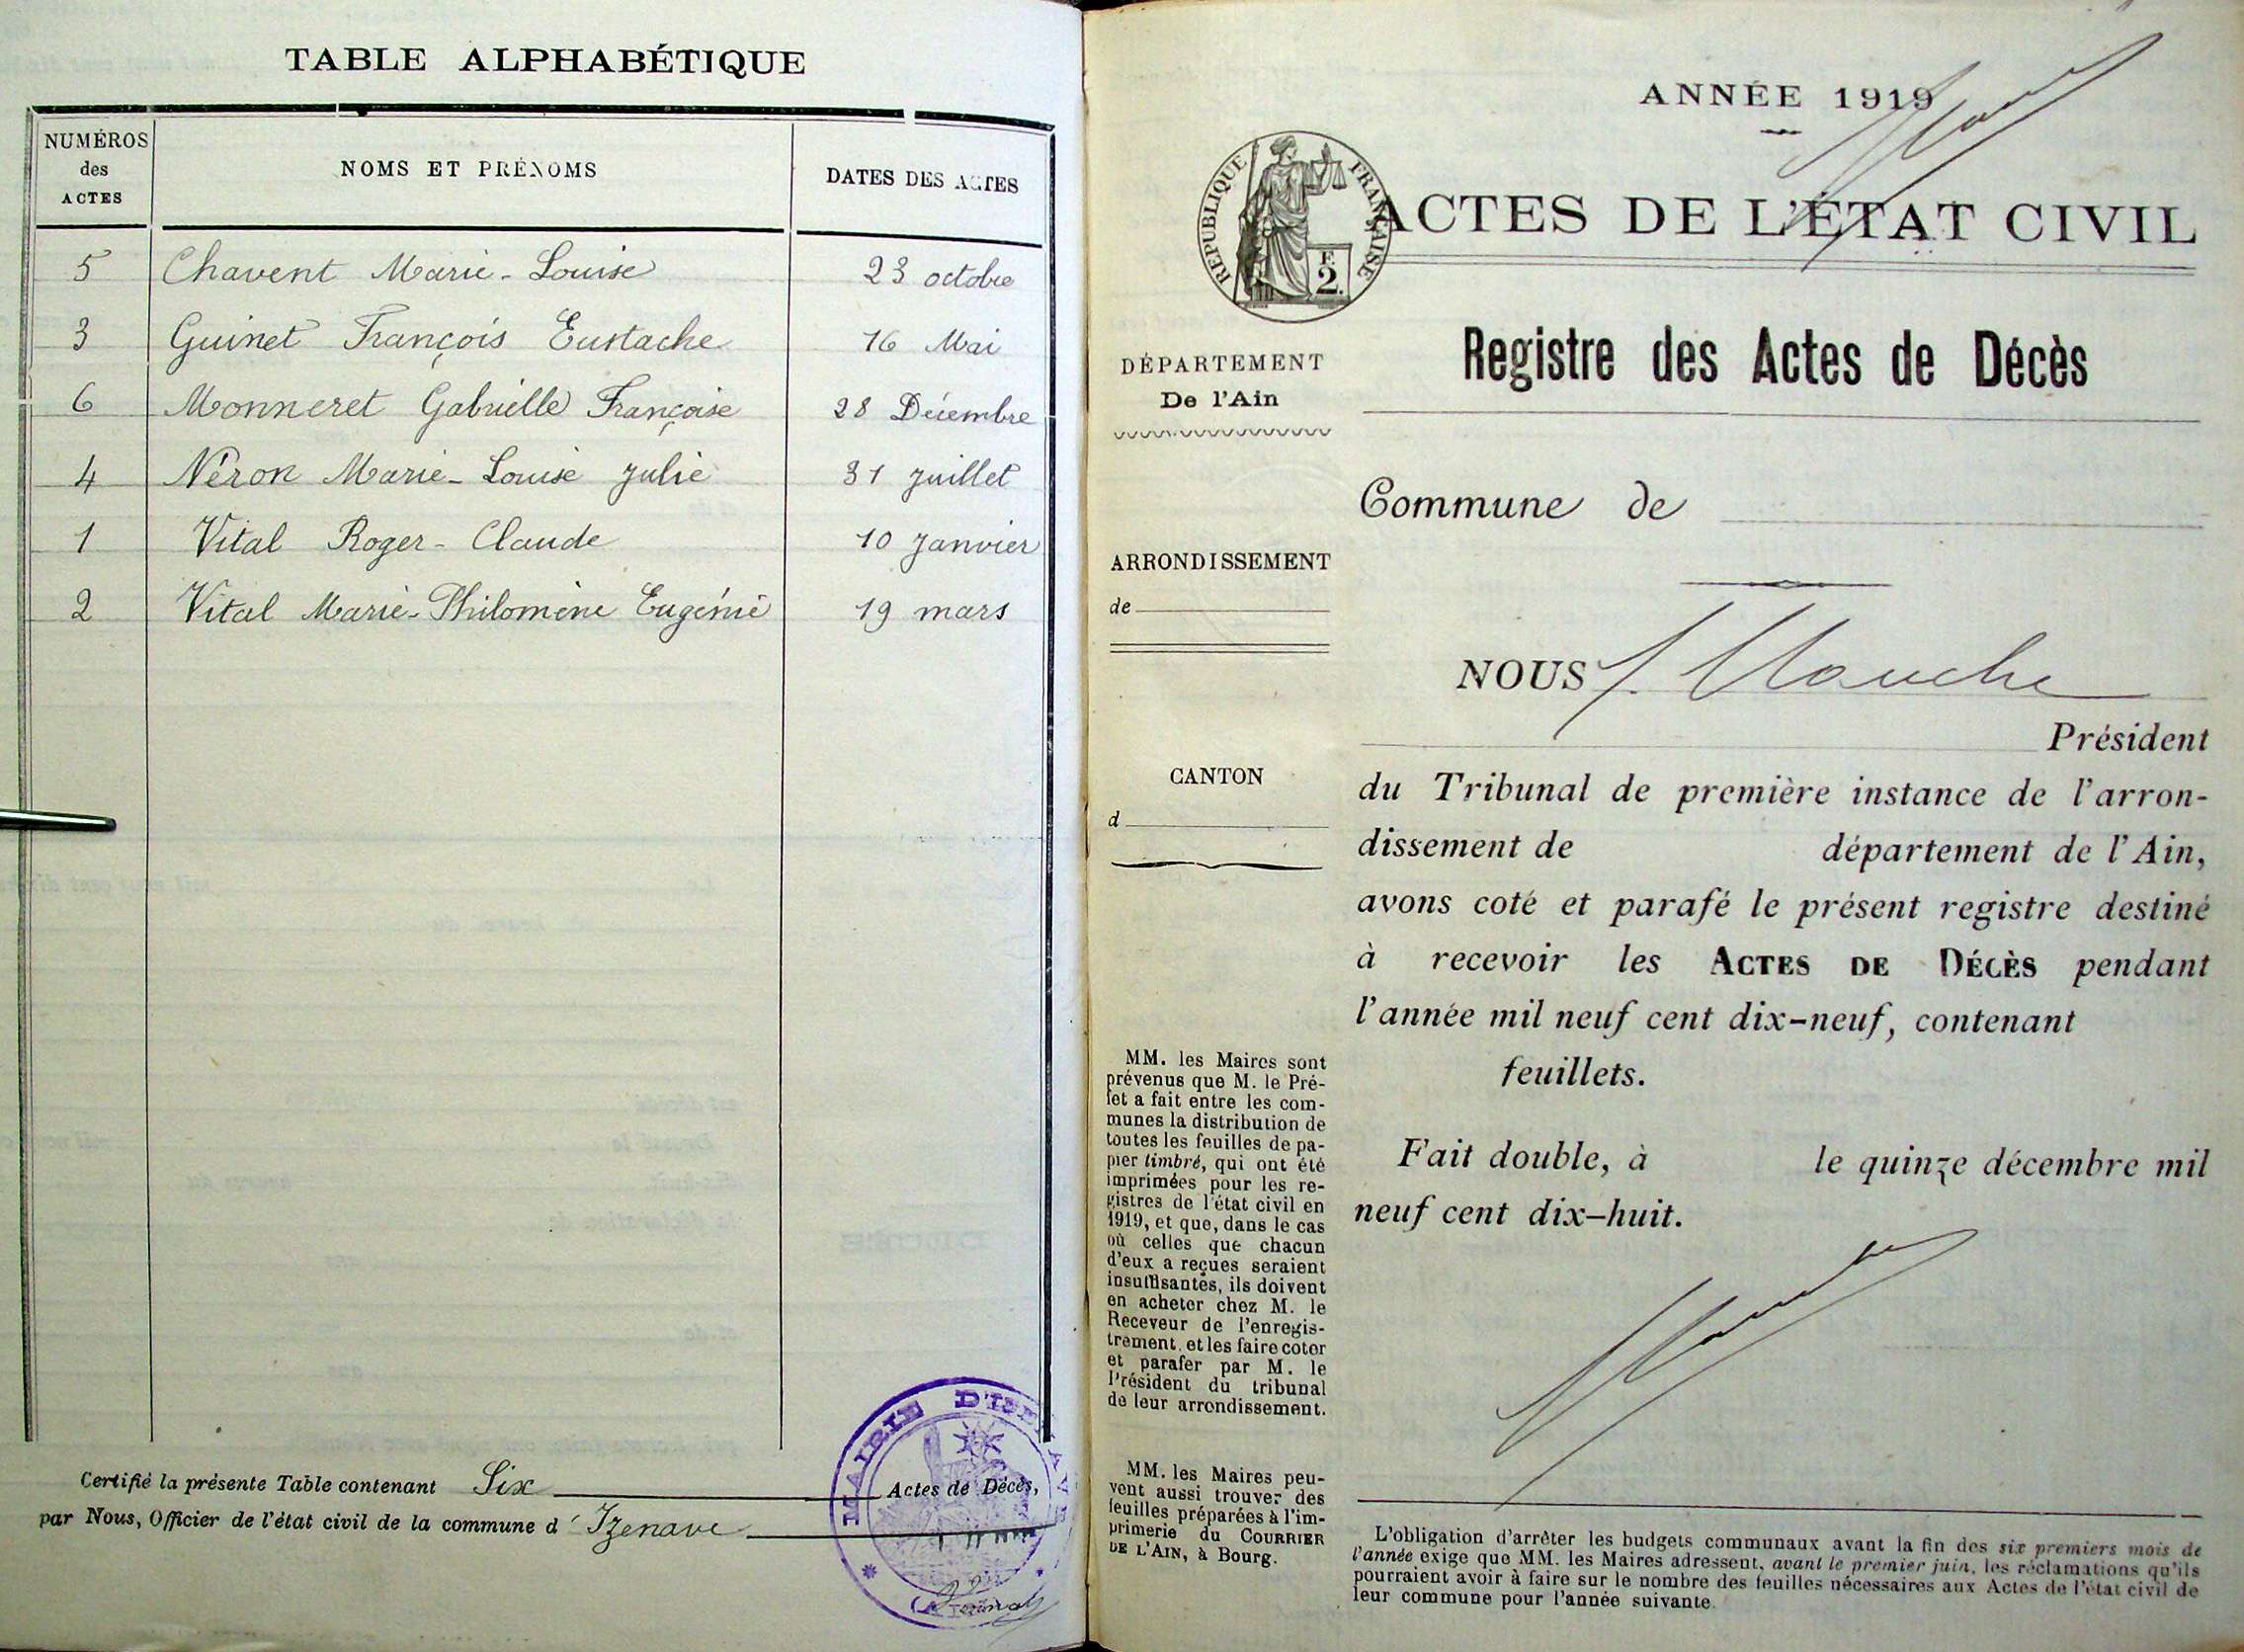 TABLE ALPHABÉTIQUE
NUMÉROS
des
ACTES
NOMS ET PRÉNOMS
DATES DES ACTES
5 Chavent Marie-Louise 23 octobre
3 Guinet François Eustache 16 Mai
6 Monneret Gabrielle Françoise 28 Décembre
4 Néron Marie-Louise Julie 31 Juillet
1 Vital Roger-Claude 10 Janvier
2 Vital Marie-Philomène Eugénie 19 mars
Certifié la présente Table contenant Six Actes de Décès,
par Nous, Officier de l'état civil de la commune d'Izenave
MAIRIE
ANNÉE 1919
RÉPUBLIQUE FRANÇAISE
F.
2.
ACTES DE L'ÉTAT CIVIL
Registre des Actes de Décès
DÉPARTEMENT
De l'Ain
ARRONDISSEMENT
de
CANTON
d
MM. les Maires sont
prévenus que M. le Pré-
fet a fait entre les com-
munes la distribution de
toutes les feuilles de pa-
pier timbré, qui ont été
imprimées pour les re-
gistres de l'état civil en
1919, et que, dans le cas
où celles que chacun
d'eux a reçues seraient
insuffisantes, ils doivent
en acheter chez M. le
Receveur de l'enregis-
trement, et les faire coter
et parafer par M. le
Président du tribunal
de leur arrondissement.
MM. les Maires peu-
vent aussi trouver des
feuilles préparées à l'im-
primerie du COURRIER
DE L'AIN, à Bourg.
Commune de
NOUS
Président
du Tribunal de première instance de l'arron-
dissement de département de l'Ain,
avons coté et parafé le présent registre destiné
à recevoir les ACTES DE DÉCÈS pendant
l'année mil neuf cent dix-neuf, contenant
feuillets.
Fait double, à le quinze décembre mil
neuf cent dix-huit.
L'obligation d'arrêter les budgets communaux avant la fin des six premiers mois de
l'année exige que MM. les Maires adressent, avant le premier juin, les réclamations qu'ils
pourraient avoir à faire sur le nombre des feuilles nécessaires aux Actes de l'état civil de
leur commune pour l'année suivante.